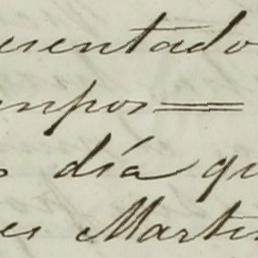 esentado
mpos=
s día qu
es Marti